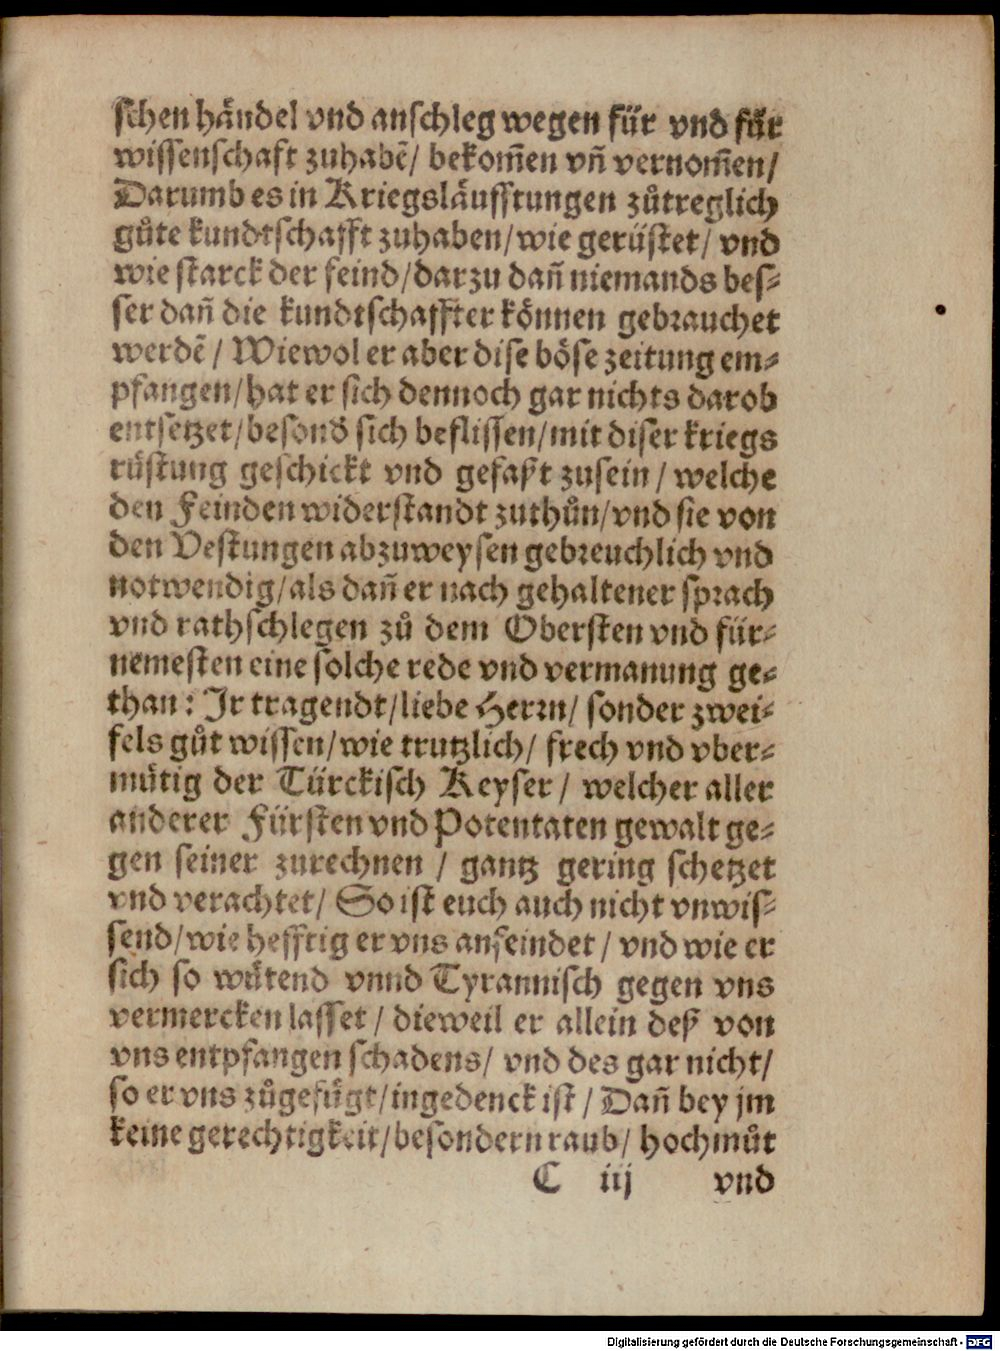 schen händel vnd anschleg wegen für vnd für
wissenschaft zuhabẽ/ bekom̃en vñ vernom̃en/
Darumb es in Kriegsläufftungen zůtreglich
gůte kundtschafft zuhaben/wie gerüstet/ vnd
wie starck der feind/darzu dañ niemands bes⸗
ser dañ die kundtschaffter können gebrauchet
werdẽ/ Wiewol er aber dise böse zeitung em⸗
pfangen/hat er sich dennoch gar nichts darob
entsetzet/besond̃ sich beflissen/mit diser kriegs
rüstung geschickt vnd gefaßt zusein/ welche
den Feinden widerstandt zuthůn/vnd sie von
den Vestungen abzuweysen gebreuchlich vnd
notwendig/als dañ er nach gehaltener sprach
vnd rathschlegen zů dem Obersten vnd für⸗
nemesten eine solche rede vnd vermanung ge⸗
than: Ir tragendt/liebe Herrn/ sonder zwei⸗
fels gůt wissen/wie trutzlich/ frech vnd vber⸗
mütig der Türckisch Keyser/ welcher aller
anderer Fürsten vnd Potentaten gewalt ge⸗
gen seiner zurechnen / gantz gering schetzet
vnd verachtet/ So ist euch auch nicht vnwis⸗
send/wie hefftig er vns anfeindet/ vnd wie er
sich so wütend vnnd Tyrannisch gegen vns
vermercken lasset/ dieweil er allein deß von
vns entpfangen schadens/ vnd des gar nicht/
so er vns zůgefügt/ingedenck ist/ Dañ bey jm
keine gerechtigkeit/besondern raub/ hochmůt
C iij vnd
Digitalisierung gefördert durch die Deutsche Forschungsgemeinschaft - DFG